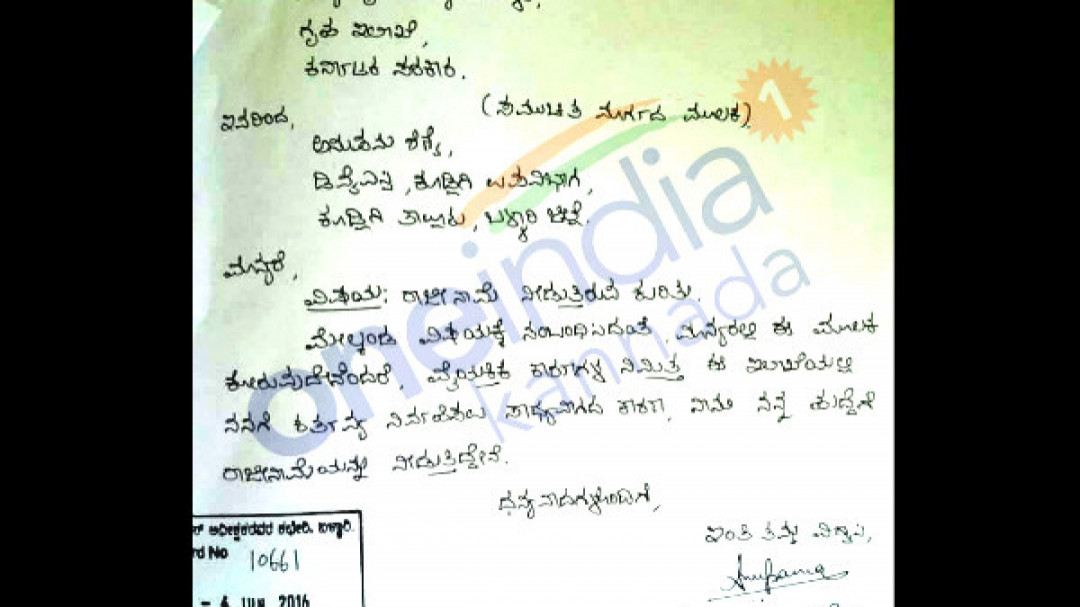 ಗೃಹ ಇಲಾಖೆ,
ಕರ್ನಾಟಕ ಸರಕಾರ.
(ಸಮುಚಿತ ಮಾರ್ಗದ ಮೂಲಕ)
ಇವರಿಂದ,
ಅನುಪಮ ಶೆಣೈ,
ಡಿವೈಎಸ್ಪಿ, ಕೂಡ್ಲಿಗಿ ಉಪವಿಭಾಗ,
ಕೂಡ್ಲಿಗಿ ತಾಲ್ಲೂಕು, ಬಳ್ಳಾರಿ ಜಿಲ್ಲೆ.
ಮಾನ್ಯರೆ,
ವಿಷಯ: ರಾಜೀನಾಮೆ ನೀಡುತ್ತಿರುವ ಕುರಿತು.
ಮೇಲ್ಕಂಡ ವಿಷಯಕ್ಕೆ ಸಂಬಂಧಿಸಿದಂತೆ, ಮಾನ್ಯರಲ್ಲಿ ಈ ಮೂಲಕ
ಕೋರುವುದೇನೆಂದರೆ, ವೈಯಕ್ತಿಕ ಕಾರಣಗಳ ನಿಮಿತ್ತ ಈ ಇಲಾಖೆಯಲ್ಲಿ
ನನಗೆ ಕರ್ತವ್ಯ ನಿರ್ವಹಿಸಲು ಸಾಧ್ಯವಾಗದ ಕಾರಣ, ನಾನು ನನ್ನ ಹುದ್ದೆಗೆ
ರಾಜೀನಾಮೆಯನ್ನು ನೀಡುತ್ತಿದ್ದೇನೆ.
ಧನ್ಯವಾದಗಳೊಂದಿಗೆ,
ಇಂತಿ ತಮ್ಮ ವಿಶ್ವಾಸಿ,
Anupama
ಅಧೀಕ್ಷಕರವರ ಕಛೇರಿ, ಬಳ್ಳಾರಿ.
rd No 10661
- 4 JUN 2016
oneindia
kannada
1